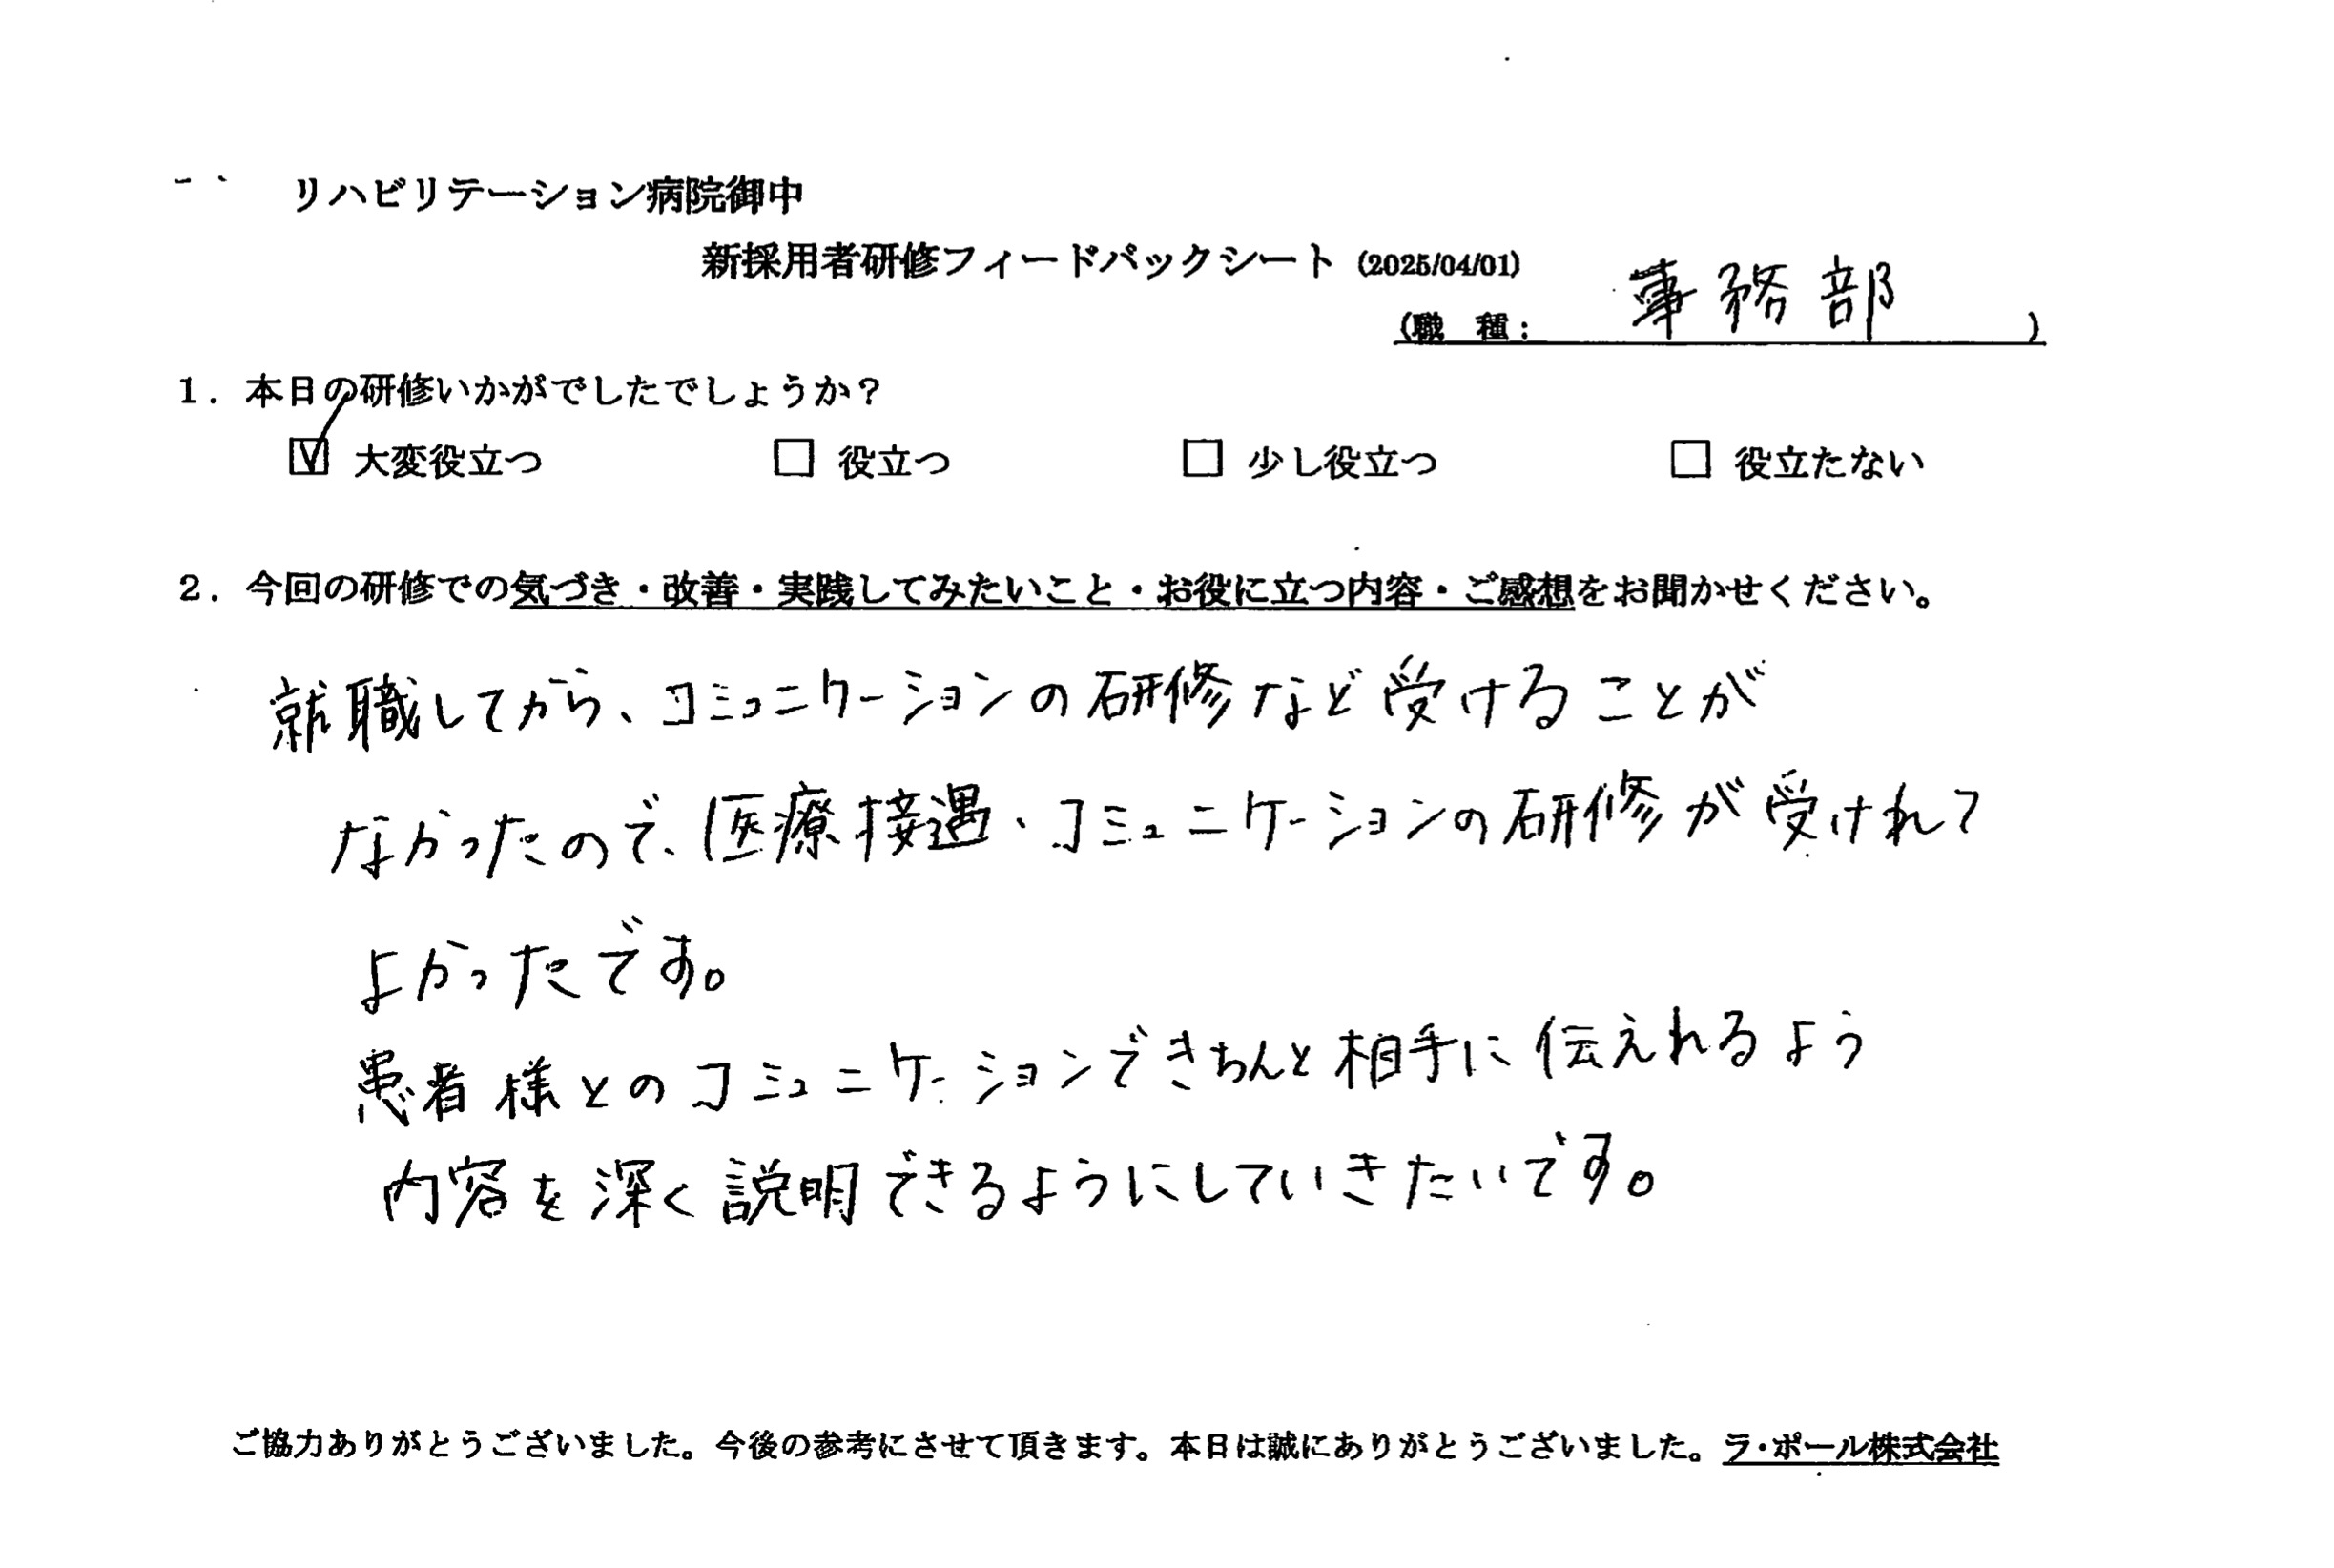 リハビリテーション病院御中
新採用者研修フィードバックシート (2025/04/01)
(職 種: 事務部 )
1. 本日の研修いかがでしたでしょうか?
☑ 大変役立つ □ 役立つ □ 少し役立つ □ 役立たない
2. 今回の研修での気づき・改善・実践してみたいこと・お役に立つ内容・ご感想をお聞かせください。
就職してから、コミュニケーションの研修など受けることが
なかったので、医療接遇・コミュニケーションの研修が受けれて
よかったです。
患者様とのコミュニケーションできちんと相手に伝えれるよう
内容を深く説明できるようにしていきたいです。
ご協力ありがとうございました。今後の参考にさせて頂きます。本日は誠にありがとうございました。ラ・ポール株式会社